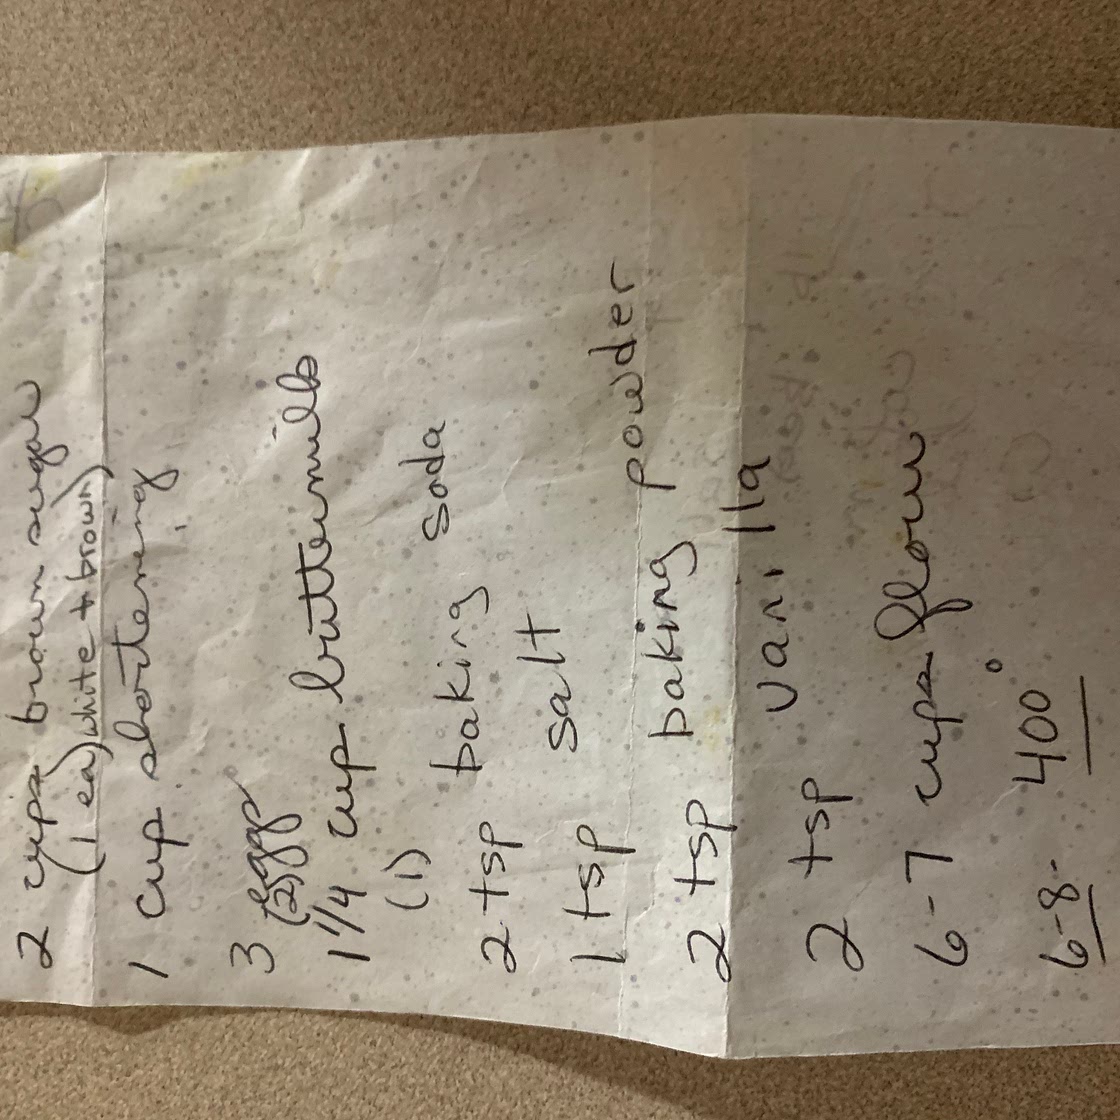 2 cups brown sugar
(1 ea) white + brown)
1 cup shortening
3 eggs
(2)
1 1/4 cup buttermilk
(1)
2 tsp baking soda
1 tsp salt
2 tsp baking powder
2 tsp vanilla
6-7 cups flour
6-8- 400°